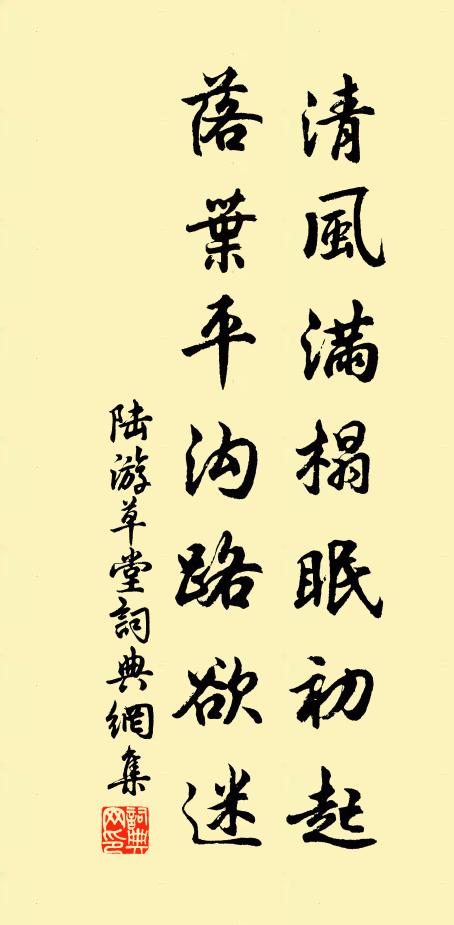 清風滿榻眠初起
落葉平沟路欲迷
陆游草堂詞典網集
詞典网印